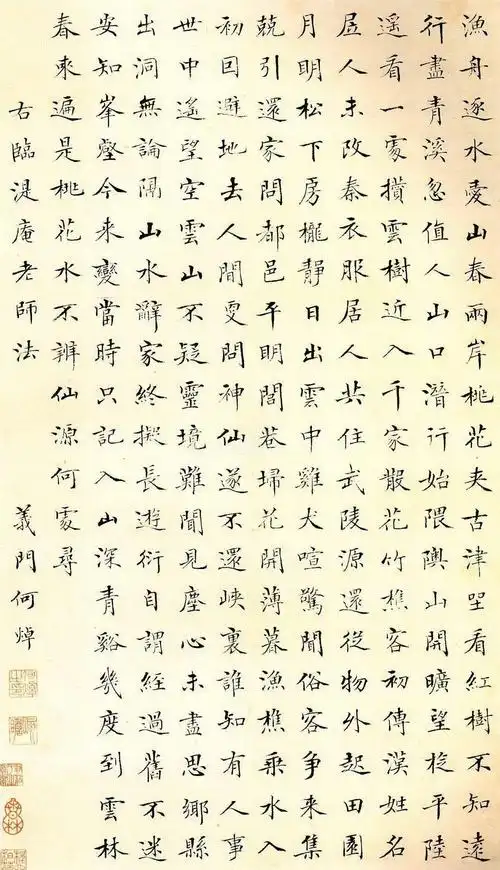 漁舟逐水愛山春兩岸桃花夾古津坐看紅樹不知遠
行盡青溪忽值人山口潛行始隈隩山開曠望旋平陸
遙看一處攢雲樹近入千家散花竹樵客初傳漢姓名
居人未改秦衣服居人共住武陵源還從物外起田園
月明松下房櫳靜日出雲中雞犬喧驚聞俗客爭来集
競引還家問都邑平明閭巷埽花開薄暮漁樵乘水入
初因避地去人間更問神仙遂不還峽裏誰知有人事
世中遙望空雲山不疑靈境難聞見塵心未盡思鄉縣
出洞無論隔山水辭家終擬長遊衍自謂經過舊不迷
安知峯壑今来變當時只記入山深青谿幾度到雲林
春来遍是桃花水不辨仙源何處尋
右臨湜庵老師法 義門何焯